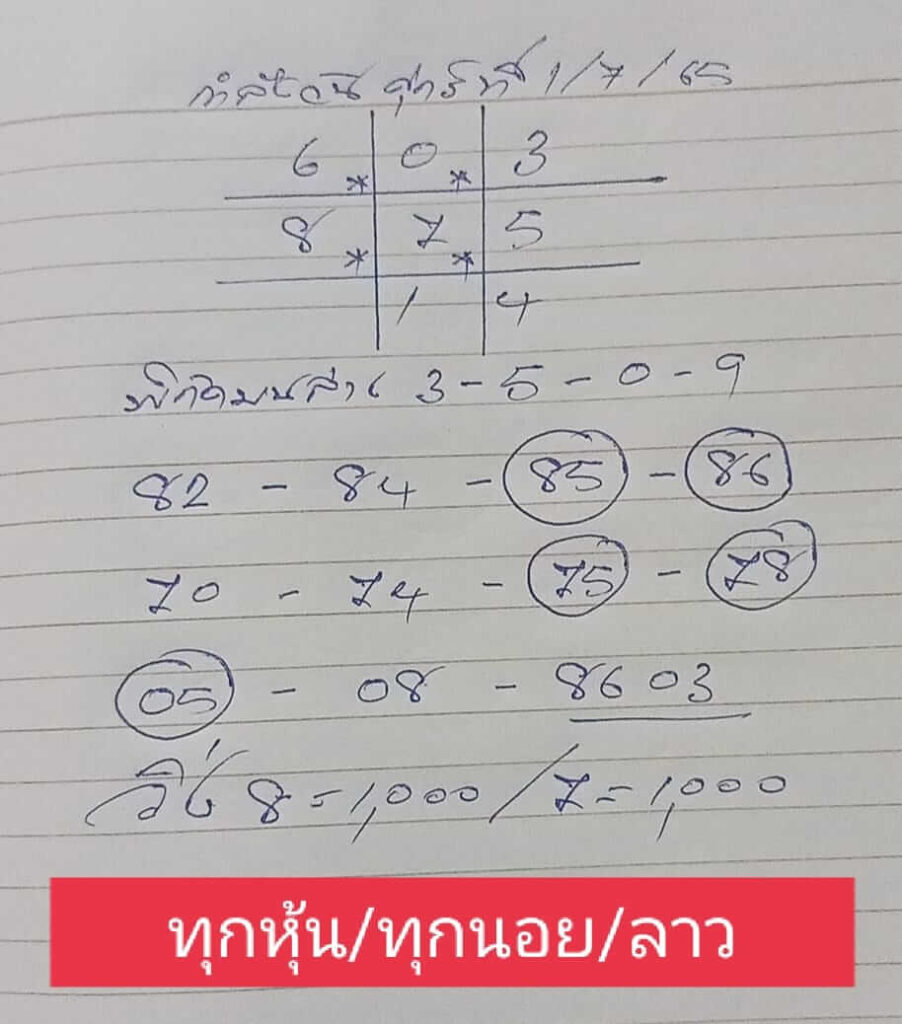 กำลังวัน ศุกร์ที่ 1/7/65
6 * 0 * 3
8 * 7 * 5
1 4
3-5-0-9
82 - 84 - 85 - 86
70 - 74 - 75 - 78
05 - 08 - 8603
วิ่ง 8=1,000 / 7=1,000
ทุกหุ้น/ทุกนอย/ลาว